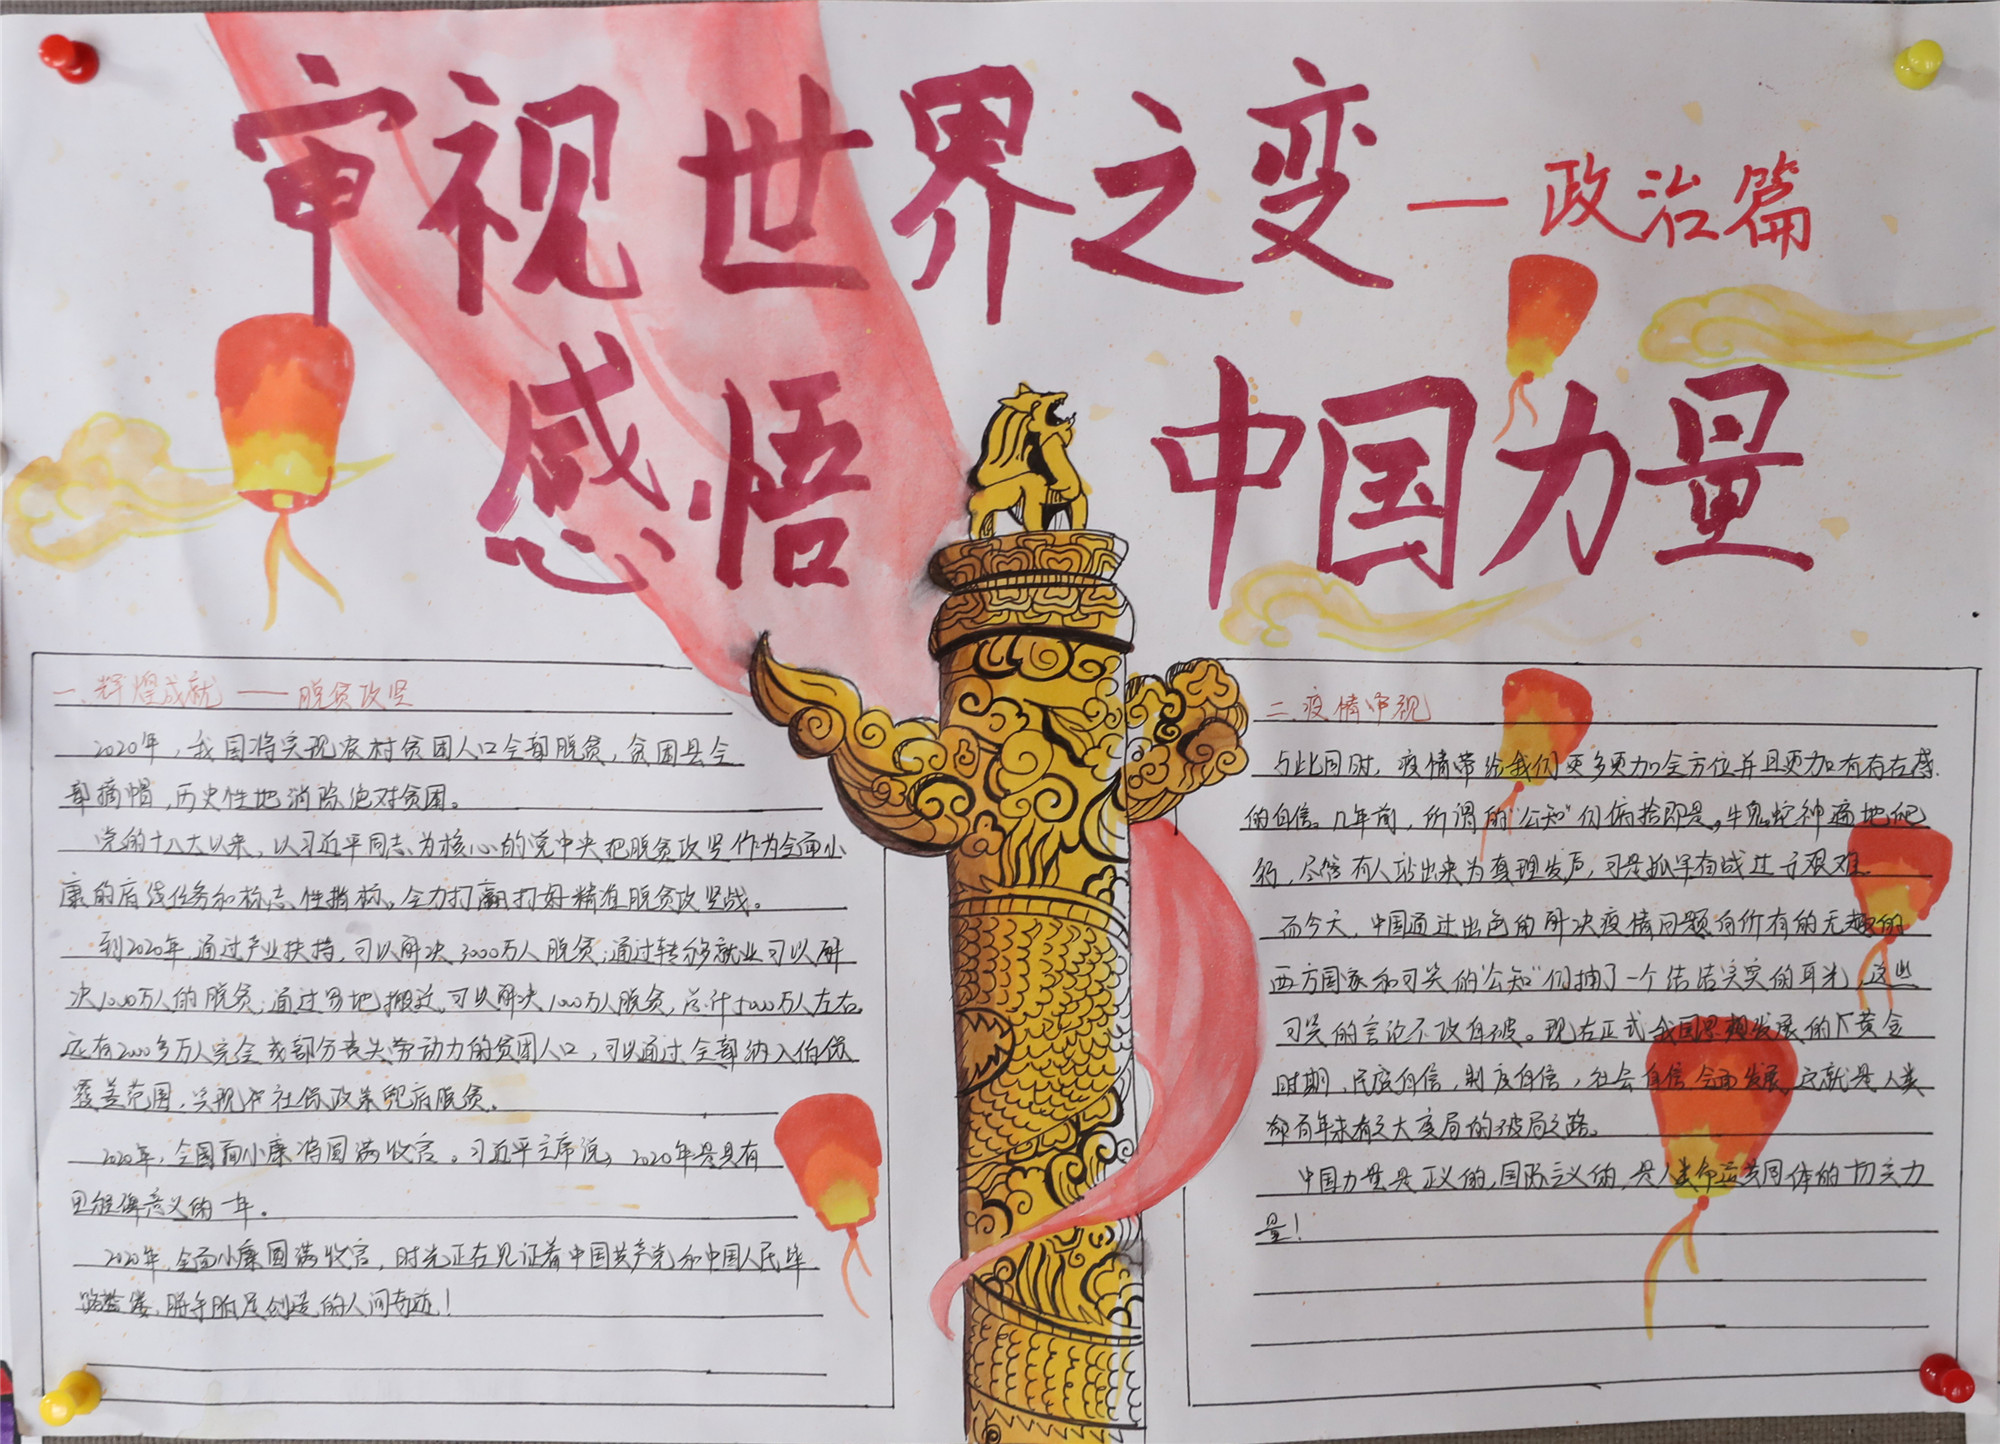 审视世界之变—政治篇
感悟 中国力量
一.辉煌成就——脱贫攻坚
2020年，我国将实现农村贫困人口全部脱贫，贫困县全
部摘帽，历史性地消除绝对贫困。
党的十八大以来，以习近平同志为核心的党中央把脱贫攻坚作为全面小
康的底线任务和标志性指标。全力打赢打好精准脱贫攻坚战。
到2020年，通过产业扶持，可以解决3000万人脱贫；通过转移就业可以解
决1000万人的脱贫；通过易地搬迁，可以解决1000万人脱贫，总计5000万人左右。
还有2000多万人完全或部分丧失劳动力的贫困人口，可以通过全部纳入低保
覆盖范围，实现社保政策兜底脱贫。
2020年，全国面小康将圆满收官。习近平主席说，2020年是具有
里程碑意义的一年。
2020年，全面小康圆满收官，时光正在见证着中国共产党和中国人民筚
路蓝缕、胼手胝足创造的人间奇迹！
二.疫情审视
与此同时，疫情带给我们更多更加全方位并且更加有有右感
的自信。几年前，所谓的“公知”们俯拾即是，牛鬼蛇神遍地爬
行，尽管有人站出来为真理发声，可是孤军奋战过于艰难。
而今天，中国通过出色的解决疫情问题向所有的无趣的
西方国家和可笑的“公知”们捕了一个结结实实的耳光，这些
可笑的言论不攻自破。现在正式我国思想发展的黄金
时期，民族自信，制度自信，社会自信，全面发展，这就是人类
命百年未有之大变局的破局之路。
中国力量是正义的，国际主义的，是人类命运共同体的切实力
量！